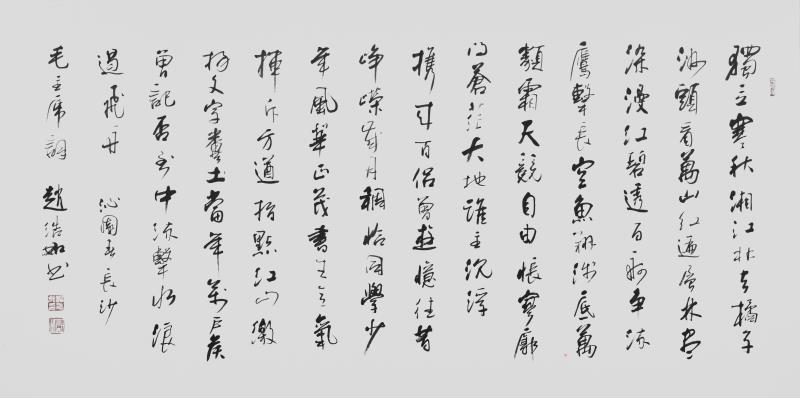 獨立寒秋湘江北去橘子
洲頭看萬山紅遍層林盡
染漫江碧透百舸爭流
鷹擊長空魚翔淺底萬
類霜天競自由悵寥廓
問蒼茫大地誰主沈浮
携來百侶曾遊憶往昔
崢嶸歲月稠恰同學少
年風華正茂書生意氣
揮斥方遒指點江山激
揚文字糞土當年萬戶侯
曾記否到中流擊水浪
遏飛舟 沁園春長沙
毛主席詞 趙浩如書